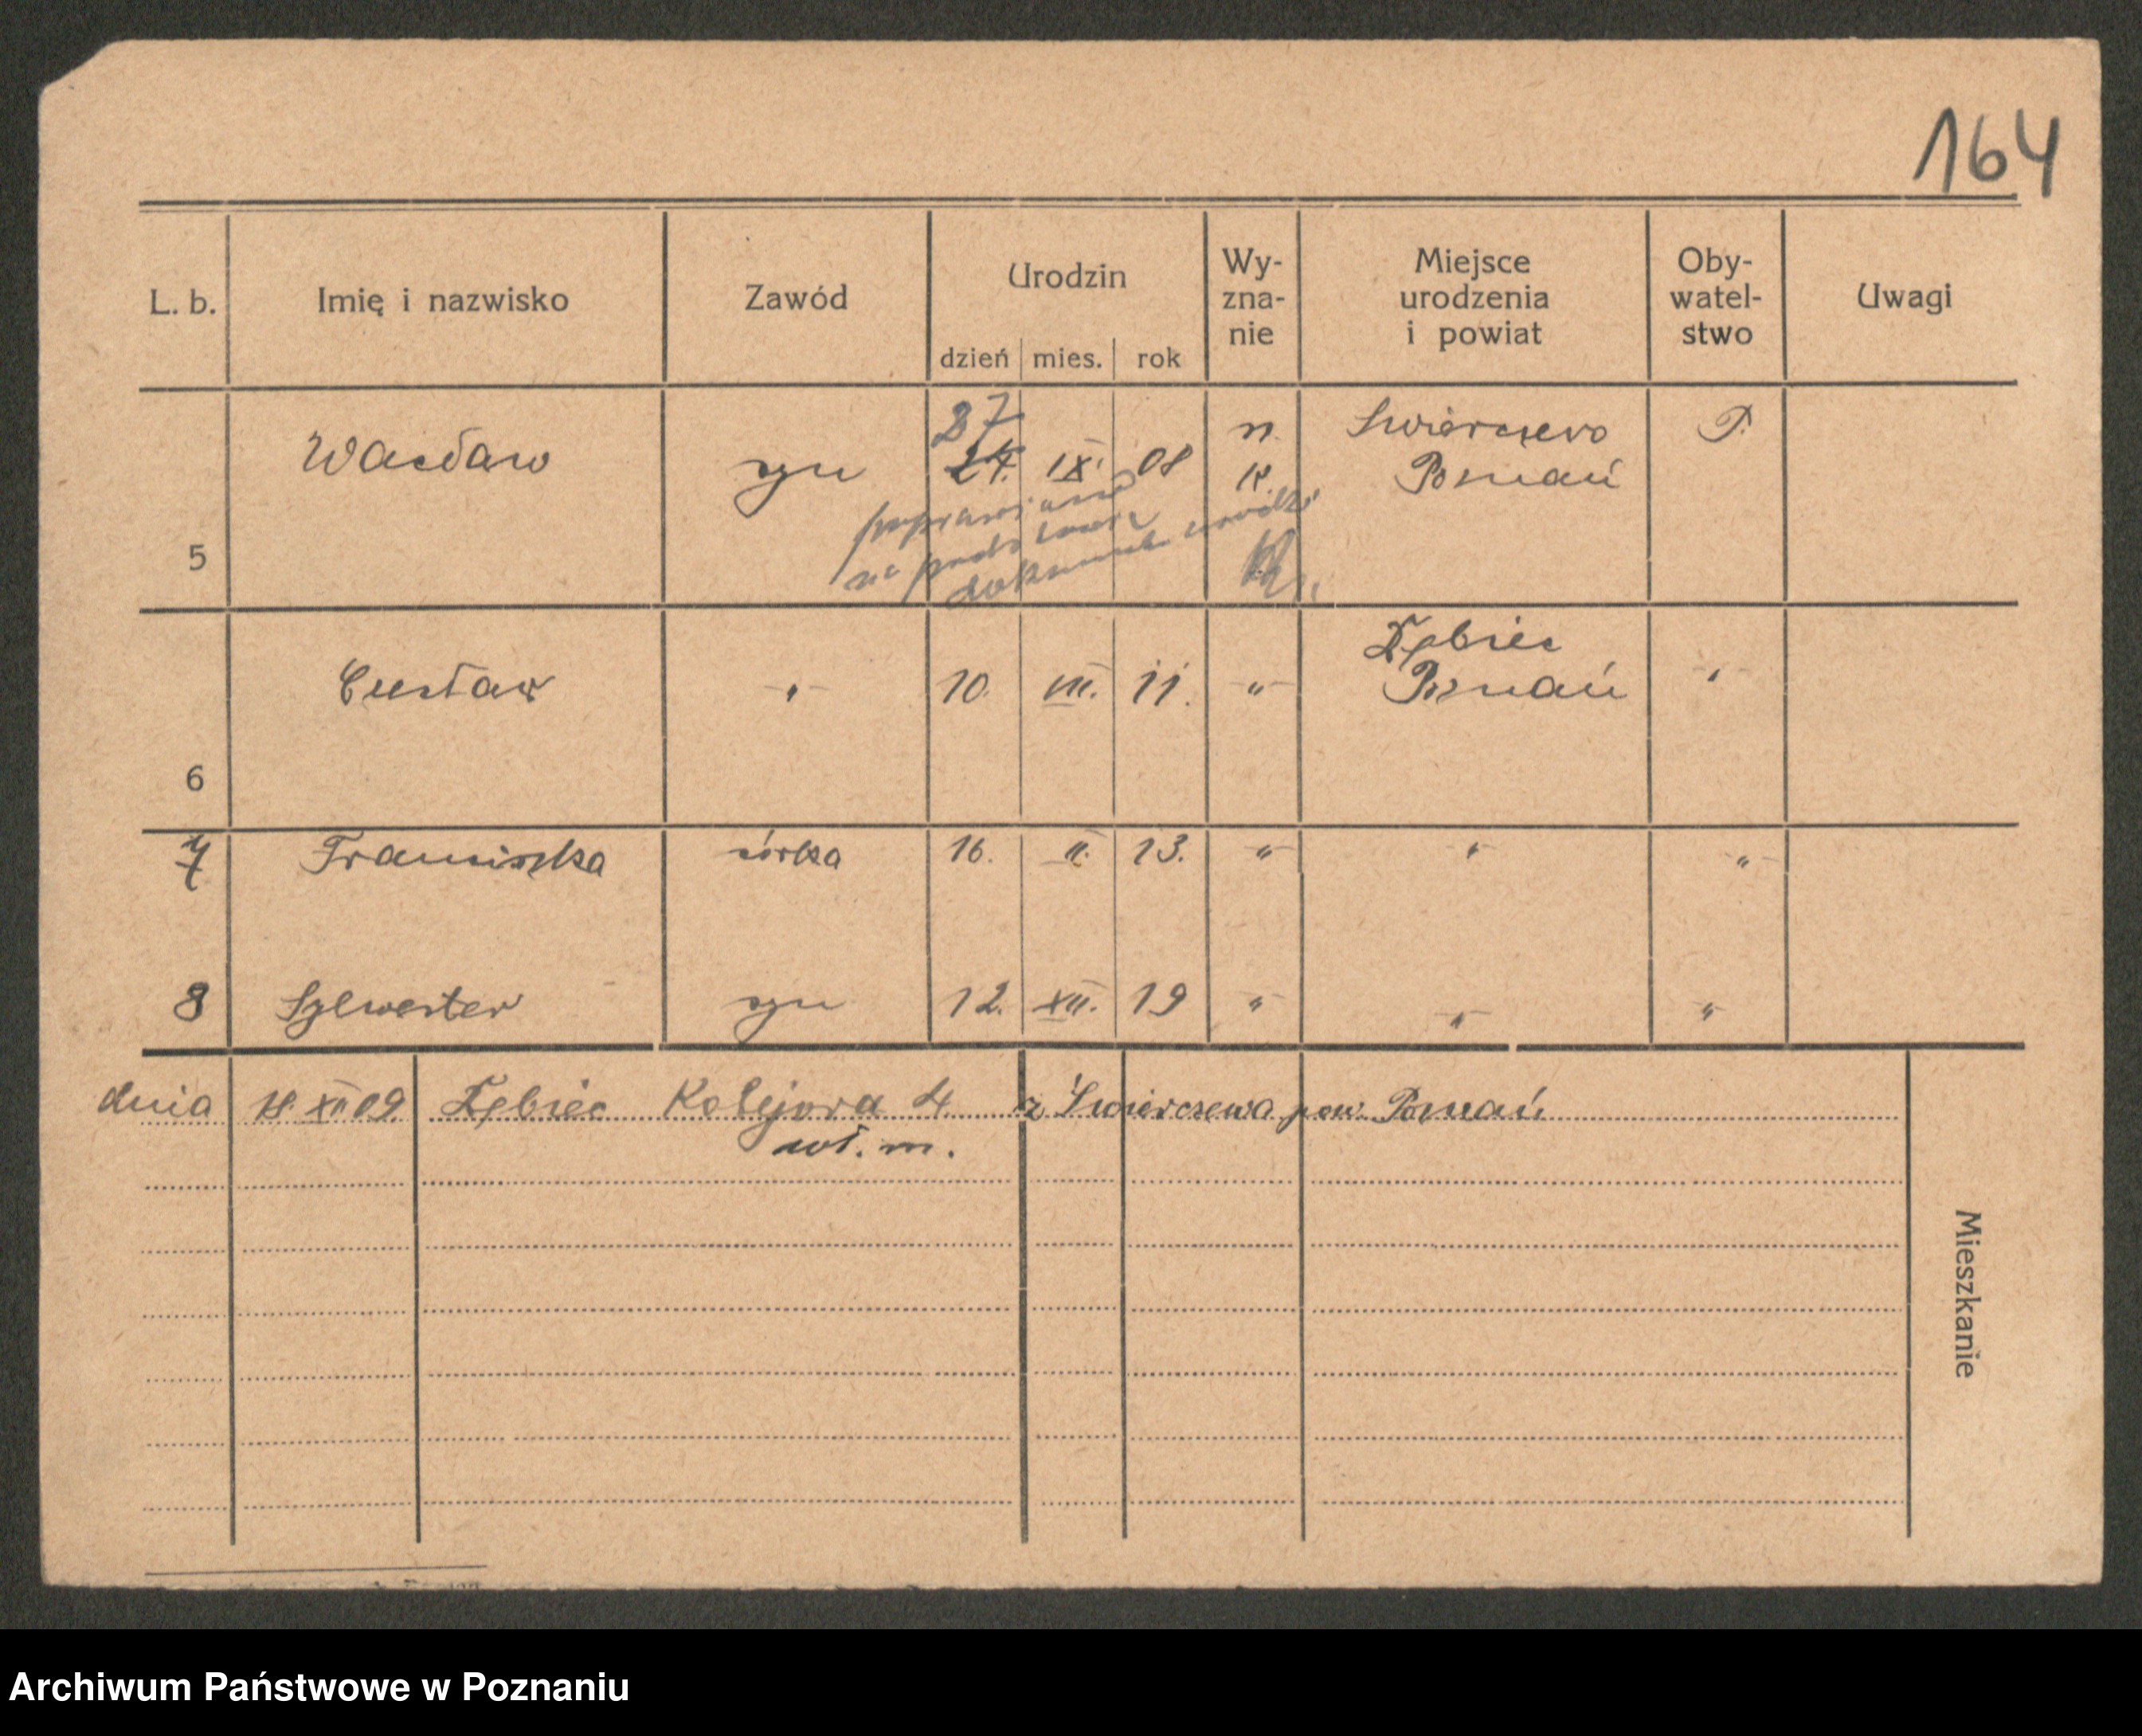 164
L. b. Imię i nazwisko Zawód Urodzin dzień mies. rok Wy-zna-nie Miejsce urodzenia i powiat Oby-watel-stwo Uwagi
27
5 Wacław syn 24. IX. 08 r. k. Swierczewo Poznań P.
poprawiono
na podstawie
dokumentu urodz.
6 Czesław " 10. VII. 11. " Dębiec Poznań "
7 Franciszka córka 16. II. 13. " " "
8 Sylwester syn 12. XII. 19 " " "
dnia 18. XII 09. Dębiec Kolejowa 4 z Świerczewa pow. Poznań
wł. m.
Mieszkanie
Archiwum Państwowe w Poznaniu